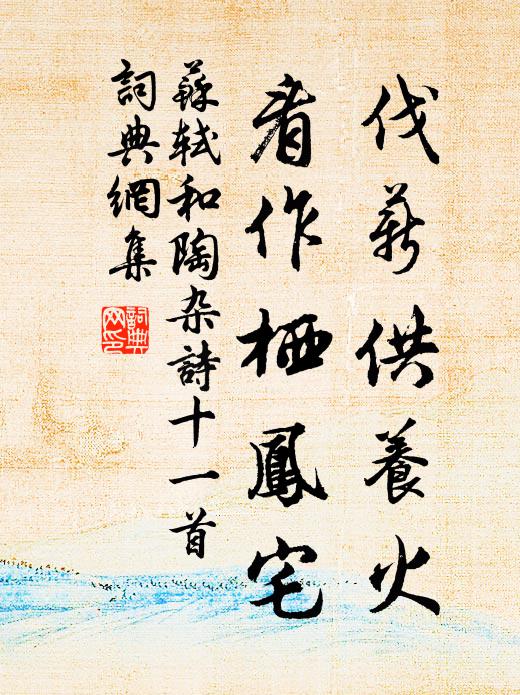 伐薪供養火
看作栖鳳宅
蘇軾和陶杂詩十一首
詞典網集
詞典網印